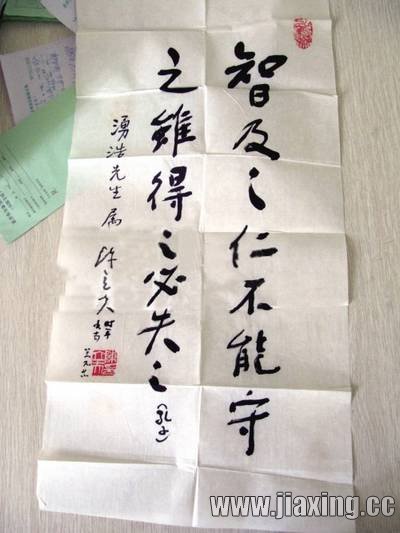 智及之仁不能守
之雖得之必失之（孔子）
湧浩先生属 陳立夫 時年
www.jiaxing.cc